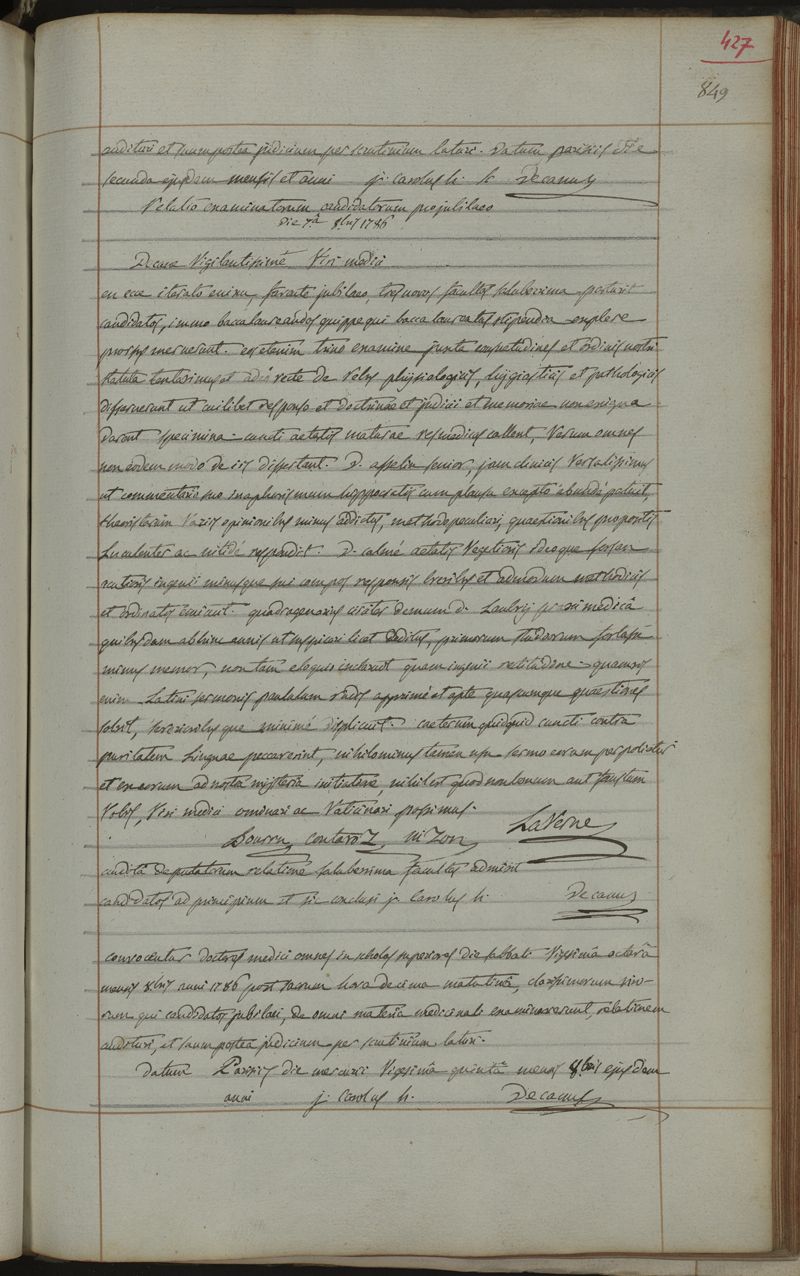 427
849
audituri et suum postea judicium per scrutinium laturi. Datum parisiis die
secunda ejusdem mensis et anni j. carolus h. Decanus
Relatio examinatorum candidatorum pro jubilaeo
die 7a 8bris 1786
Decane Vigilantissime Viri medici
en ecce iterato enixu, favente jubilaeo, tres novos facultas saluberrima parturit
candidatos, immo baccalaureandos quippe qui baccalaureatus stipendia explere
prorsus meruerunt. eos etenim trino examine juxta consuetudines et ordinis nostri
statuta tentavimus et adeo recte de rebus physiologicis, hygieisticis et pathologicis
disseruerunt ut cuilibet responso et doctrinae et judicii et memoriae non exigua
darent specimina. cuncti aetatis maturae res medicas callent, Verum omnes
non eodem modo de iis dissertant. D. asselin senior, jam clinicis Versatissimus
ut commentario suo in aphorismum hyppocratis cum plausu excepto abundè patuit,
variis opinionibus minus addictus, methodo peculiari, quaestionibus propositis
luculenter ac nitidè respondit. D. calmé aetatis Vegetioris ideoque forsan
acutioris ingenii minusque sui compos responsis brevibus et admodum methodicis
et ordinatis
quadragenarius demum D. Laubry praxi medicâ
quibusdam abhinc annis ut suspicari licet deditus, primorum studiorum fortassè
minus memor, non tam eloquio inclaruit quam ingenii rectitudine quamvis
enim Latini sermonis paululum rudis apprimè et aptè quascumque quaestiones
solvit, minimè displicuit. caeterum quidquid cuncti contra
puritatem linguae peccaverint, nihilominus tamen usu sermo eorum perpolietur
et ex eorum ad nostra mysteria initiatione, nihil est quod non bonum aut faustum
Vobis, Viri medici ominari ac Vaticinari possimus.
Bourru, contavoz, nizon, LaVerne
auditâ deputatorum relatione saluberrima facultas admisit
candidatos ad principium et sic conclusi j. Carolus h. Decanus
convocentur doctores medici omnes in scholas superiores die sabbati Vigesimâ octavâ
mensis 8bris anni 1786 post sacrum hora decima matutinâ, clarissimorum viro-
rum qui candidatos jubilaei, de omni materia medicinali examinaverunt, relationem
audituri, et suum postea judicium per scrutinium laturi.
Datum Parisiis die mercurii Vigesimâ quintâ mensis 8bris ejusdem
anni j. Carolus h. Decanus